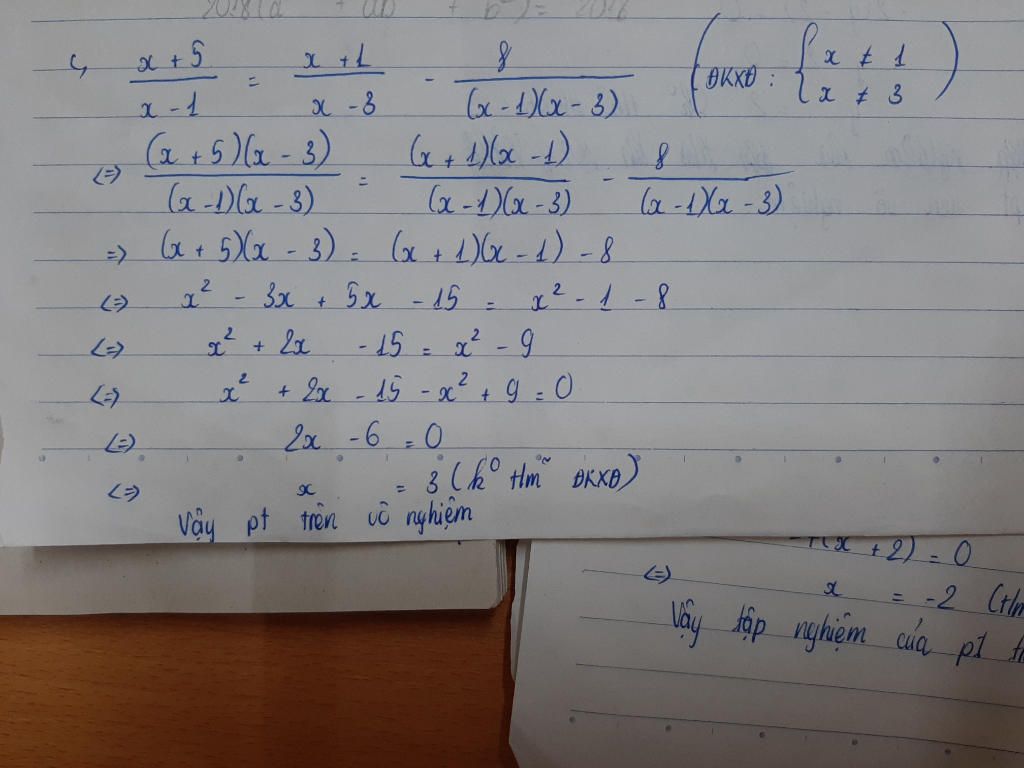 c, x + 5 / x - 1 = x + 1 / x - 3 - 8 / (x - 1)(x - 3) (ĐKXĐ : { x ≠ 1 x ≠ 3 )
<=> (x + 5)(x - 3) / (x - 1)(x - 3) = (x + 1)(x - 1) / (x - 1)(x - 3) - 8 / (x - 1)(x - 3)
=> (x + 5)(x - 3) = (x + 1)(x - 1) - 8
<=> x² - 3x + 5x - 15 = x² - 1 - 8
<=> x² + 2x - 15 = x² - 9
<=> x² + 2x - 15 - x² + 9 = 0
<=> 2x - 6 = 0
<=> x = 3 (k⁰ t/m~ ĐKXĐ)
Vậy pt trên vô nghiệm
(x + 2) = 0
<=> x = -2 (t/m
Vậy tập nghiệm của pt